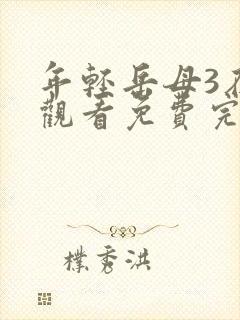 年輕岳母3在
觀看免費完
樸秀洪